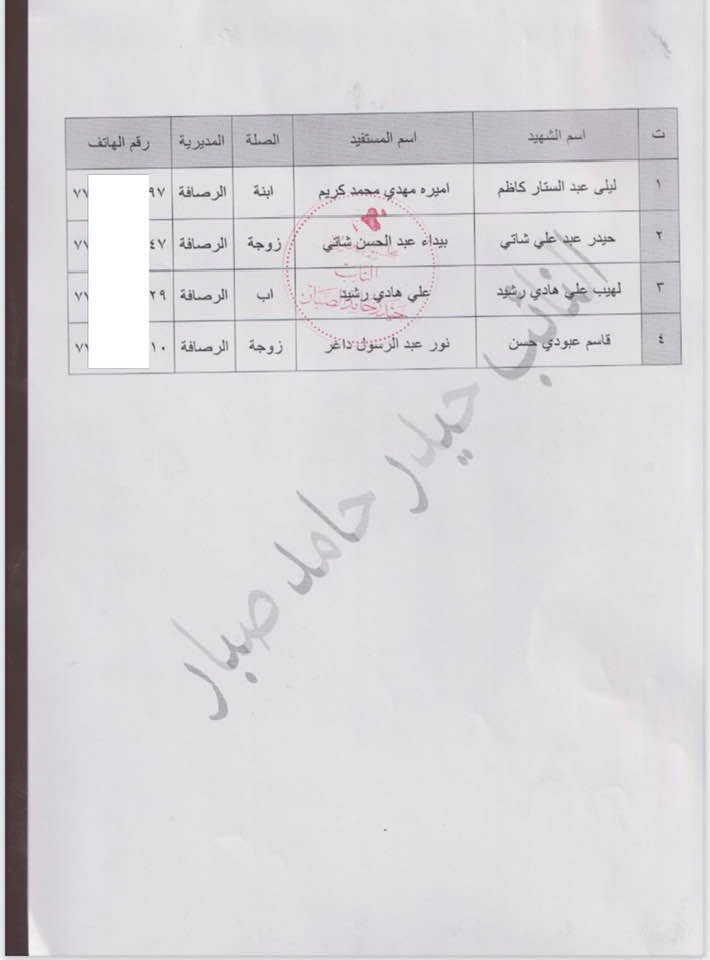 ت اسم الشهيد اسم المستفيد الصلة المديرية رقم الهاتف
١ ليلى عبد الستار كاظم اميره مهدي محمد كريم ابنة الرصافة ٧٧ ٩٧
٢ حيدر عبد علي شاتي بيداء عبد الحسن شاتي زوجة الرصافة ٧٧ ٤٧
٣ لهيب علي هادي رشيد علي هادي رشيد اب الرصافة ٧٧ ٢٩
٤ قاسم عبودي حسن نور عبد الرسول داغر زوجة الرصافة ٧٧ ١٠
النائب
حيدر حامد صبار
النائب حيدر حامد صبار